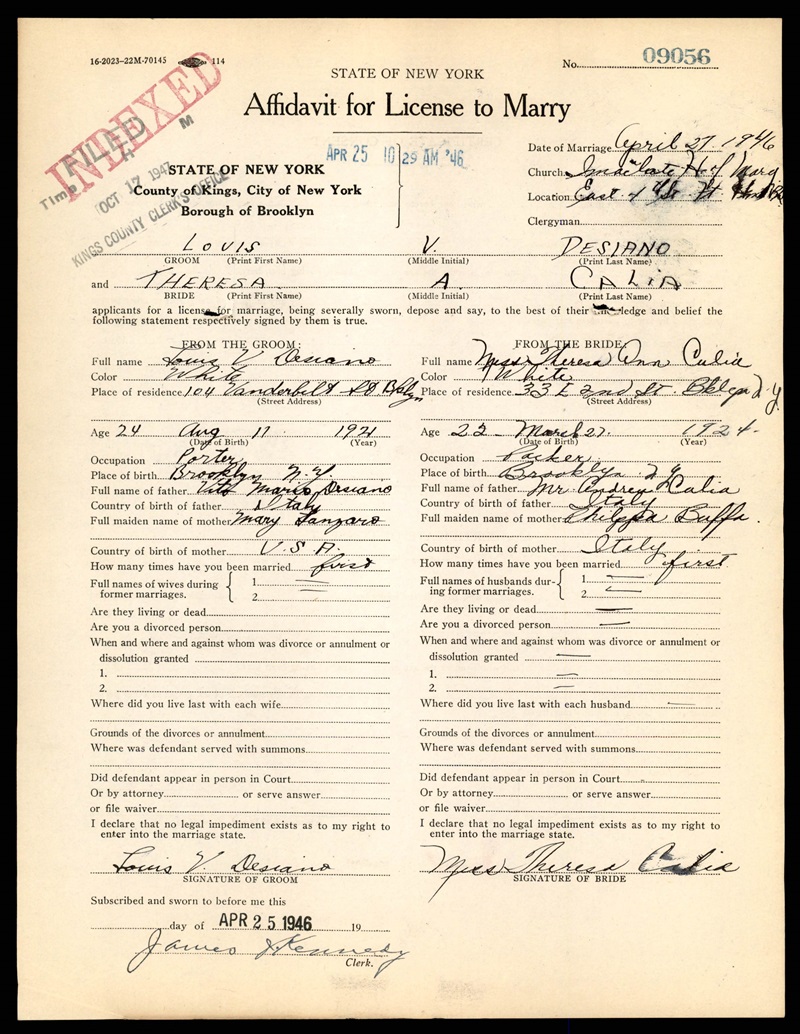 16-2023-22M-70145 114
No. 09056
STATE OF NEW YORK
Affidavit for License to Marry
INDEXED
FILED
Time A M
OCT 17 1947
KINGS COUNTY CLERK'S OFFICE
APR 25 10 29 AM '46
STATE OF NEW YORK
County of Kings, City of New York
Borough of Brooklyn
Date of Marriage April 27, 1946
Church Immaculate H of Mary
Location East 4 St. Ft.
Clergyman
LOUIS V. DESIANO
GROOM (Print First Name) (Middle Initial) (Print Last Name)
and THERESA A. CALIA
BRIDE (Print First Name) (Middle Initial) (Print Last Name)
applicants for a license for marriage, being severally sworn, depose and say, to the best of their knowledge and belief the
following statement respectively signed by them is true.
FROM THE GROOM:
Full name Louis V Desiano
Color White
Place of residence 104 Vanderbilt St Bklyn
(Street Address)
Age 24 Aug 11 1921
(Date of Birth) (Year)
Occupation Porter
Place of birth Brooklyn N.Y.
Full name of father Vito Mario Desiano
Country of birth of father Italy
Full maiden name of mother Mary Lanzaro
Country of birth of mother U.S.A.
How many times have you been married first
Full names of wives during
former marriages.
1.
2.
Are they living or dead
Are you a divorced person
When and where and against whom was divorce or annulment or
dissolution granted
1.
2.
Where did you live last with each wife
Grounds of the divorces or annulment
Where was defendant served with summons
Did defendant appear in person in Court
Or by attorney or serve answer
or file waiver
I declare that no legal impediment exists as to my right to
enter into the marriage state.
Louis V Desiano
SIGNATURE OF GROOM
FROM THE BRIDE:
Full name Miss Theresa Ann Calia
Color White
Place of residence 33 E 2nd St Bklyn N.Y
(Street Address)
Age 22 March 27. 1924.
(Date of Birth) (Year)
Occupation Packer
Place of birth Brooklyn N.Y
Full name of father Mr Andrew Calia
Country of birth of father Italy
Full maiden name of mother Philippa Buffa.
Country of birth of mother Italy
How many times have you been married first
Full names of husbands dur-
ing former marriages.
1.
2.
Are they living or dead
Are you a divorced person
When and where and against whom was divorce or annulment or
dissolution granted
1.
2.
Where did you live last with each husband
Grounds of the divorces or annulment
Where was defendant served with summons
Did defendant appear in person in Court
Or by attorney or serve answer
or file waiver
I declare that no legal impediment exists as to my right to
enter into the marriage state.
Miss Theresa Calia
SIGNATURE OF BRIDE
Subscribed and sworn to before me this
day of APR 25 1946 19
James J Kennedy
Clerk.